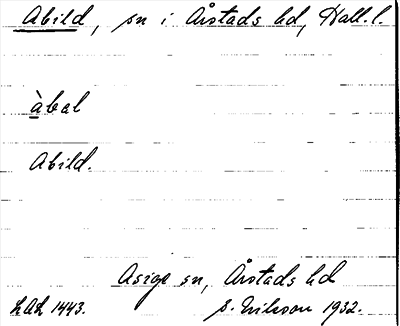 Abild, sn i Årstads hd, Hall. l.
àbal
Abild.
Asige sn, Årstads hd
LAL 1443. S. Nilsson 1932.